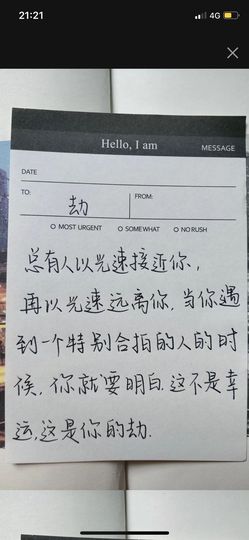 21:21
4G
Hello, I am
MESSAGE
DATE
TO:
FROM:
劫
MOST URGENT
SOMEWHAT
NO RUSH
总有人以光速接近你,
再以光速远离你.当你遇
到一个特别合拍的人的时
候,你就要明白.这不是幸
运,这是你的劫.